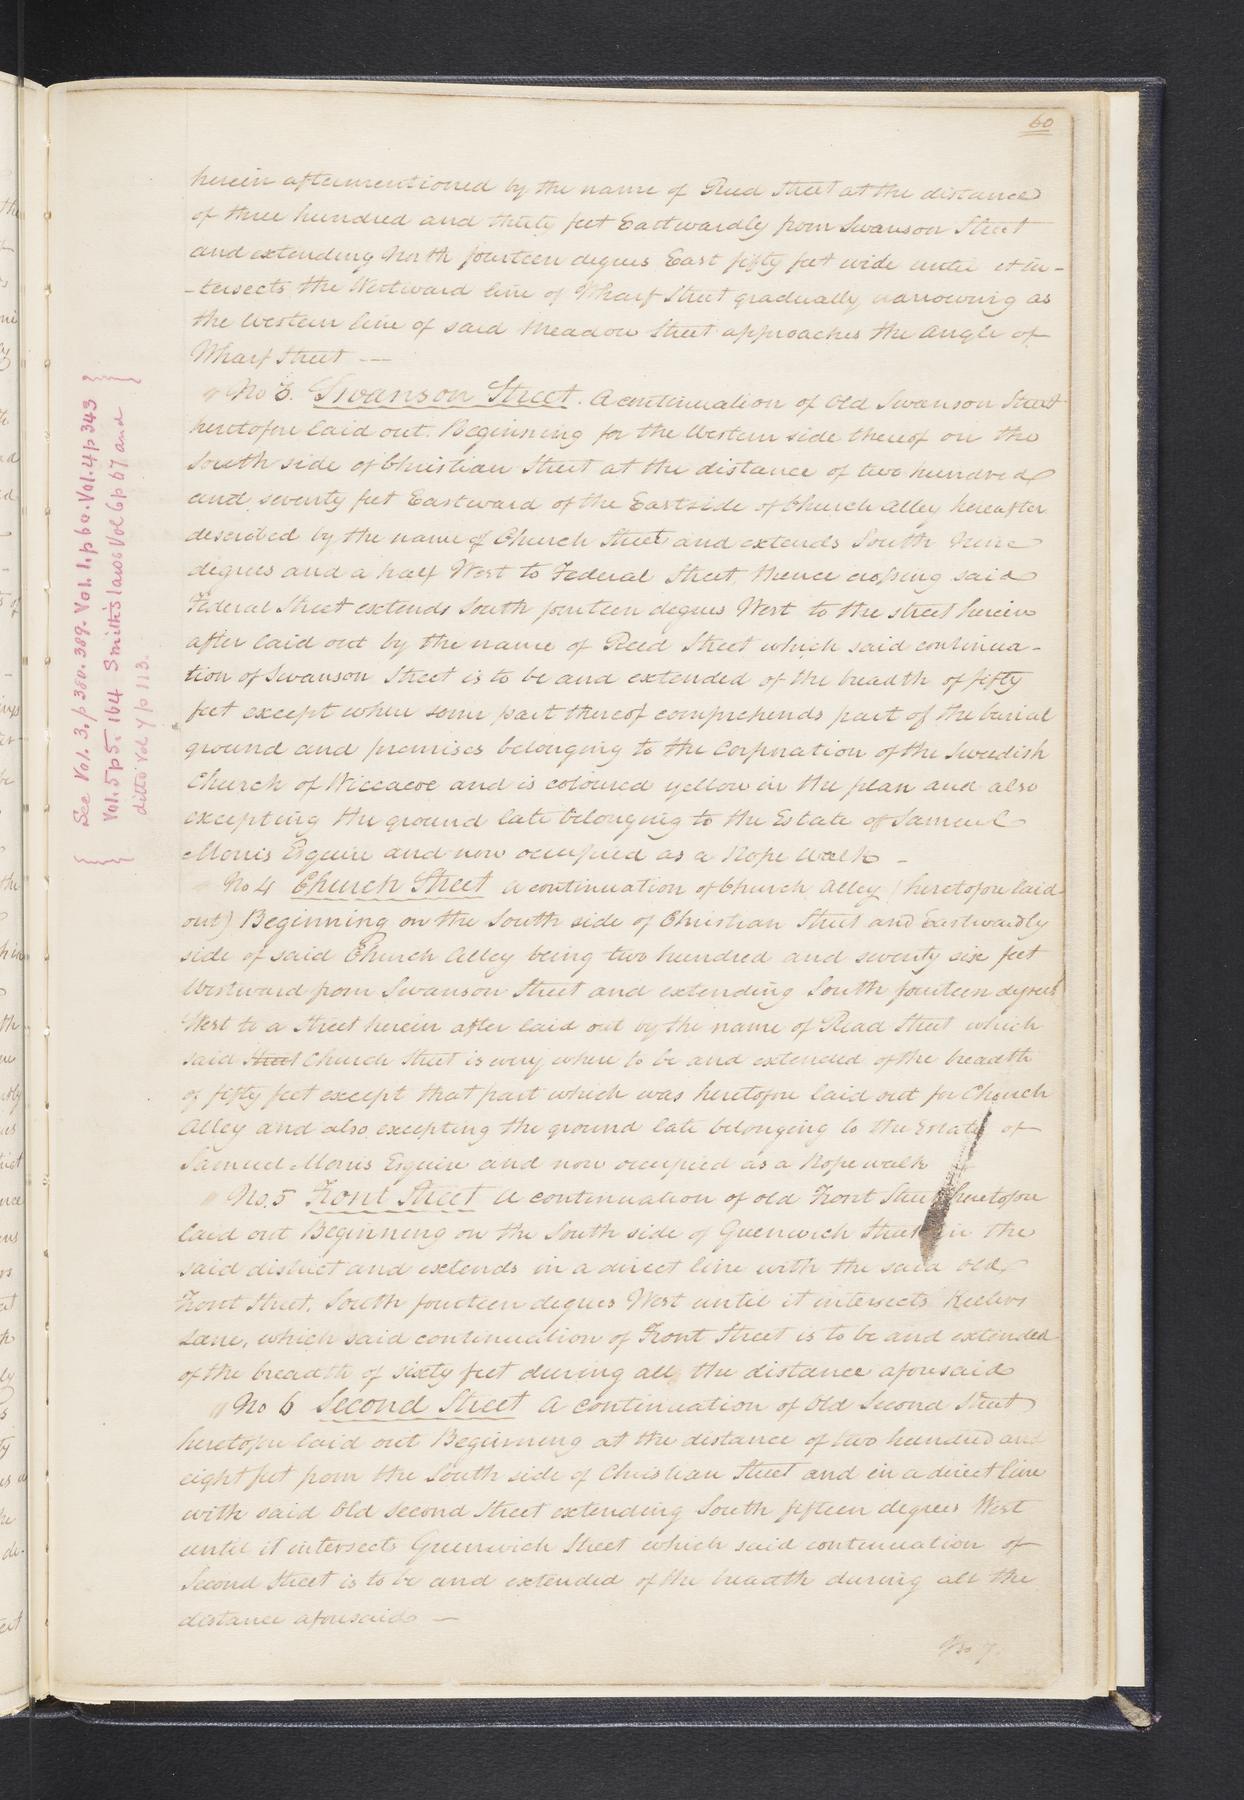 60
herein aftermentioned by the name of Reed Street at the distance
of three hundred and thirty feet Eastwardly from Swanson Street
and extending North fourteen degrees East fifty feet wide until it in-
-tersects the Westward line of Wharf Street gradually narrowing as
the Western line of said Meadow Street approaches the angle of
Wharf Street —
" No 3. Swanson Street. A continuation of Old Swanson Street
heretofore laid out. Beginning for the Western side thereof on the
South side of Christian Street at the distance of two hundred
and seventy feet Eastward of the East side of Church Alley hereafter
described by the name of Church Street and extends South Nine
degrees and a half West to Federal Street, thence crossing said
Federal Street extends South fourteen degrees West to the street herein
after laid out by the name of Reed Street which said continua-
tion of Swanson Street is to be and extended of the breadth of fifty
feet except where some part thereof comprehends part of the burial
ground and premises belonging to the Corporation of the Swedish
Church of Wiccacoe and is coloured yellow in the plan and also
excepting the ground late belonging to the Estate of Samuel
Morris Esquire and now occupied as a Rope Walk —
" No 4 Church Street a continuation of Church Alley (heretofore laid
out) Beginning on the South side of Christian Street and Eastwardly
side of said Church Alley being two hundred and seventy six feet
Westward from Swanson Street and extending South fourteen degrees
West to a Street herein after laid out by the name of Read Street which
said Street Church Street is every where to be and extended of the breadth
of fifty feet except that part which was heretofore laid out for Church
Alley and also excepting the ground late belonging to the Estate of
Samuel Morris Esquire and now occupied as a Rope walk
" No. 5 Front Street A continuation of old Front Street heretofore
laid out Beginning on the South side of Greenwich Street in the
said district and extends in a direct line with the said old
Front Street, South fourteen degrees West until it intersects Keelers
Lane, which said continuation of Front Street is to be and extended
of the breadth of sixty feet during all the distance aforesaid
" No 6 Second Street A continuation of Old Second Street
heretofore laid out Beginning at the distance of two hundred and
eight feet from the South side of Christian Street and in a direct line
with said Old Second Street extending South fifteen degrees West
until it intersects Greenwich Street which said continuation of
Second Street is to be and extended of the breadth during all the
distance aforesaid —
No 7.
See Vol. 3. p 380. 389. Vol. 1. p 60. Vol. 4 p 343
Vol. 5 p 5. 164 Smith's laws Vol 6 p 67 and
ditto Vol 7 p 113.